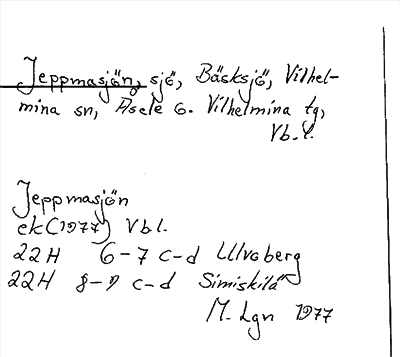 Jeppmasjön, sjö, Bäsksjö, Vilhel-
mina sn, Åsele o. Vilhelmina tg,
Vb.l.
Jeppmasjön
ek (1977) Vbl.
22H 6-7 c-d Ulvoberg
22H 8-9 c-d Simiskilä
M. Lgn 1977